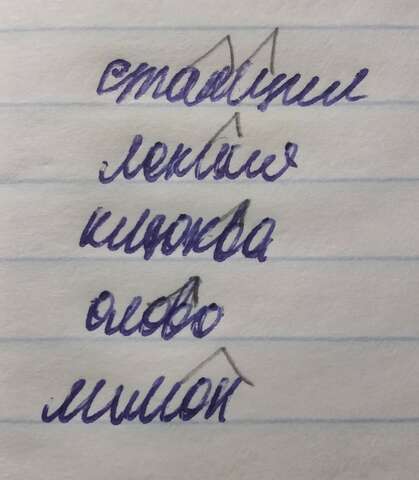 станции
лекция
клюква
олово
лимон